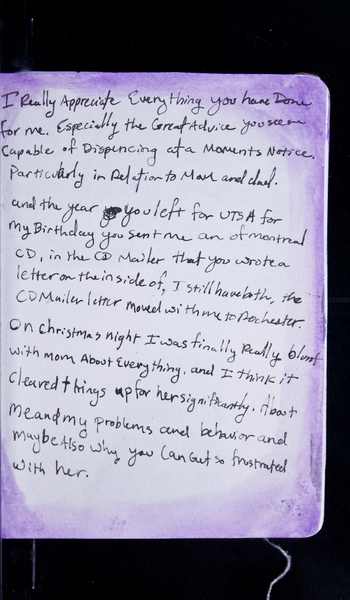 I Really Appreciate Everything you have Done
for me. Especially the Great Advice you seem
Capable of Dispencing at a Moments Notice.
Particularly in Relation to Mom and dad.
and the year you left for UTSA for
My Birthday you sent me an of montreal
CD, in the CD Mailer that you wrote a
letter on the inside of, I still have both, the
CD Mailer letter moved with me to Rochester.
On Christmas night I was finally Really blunt
with mom About Everything, and I think it
Cleared things up for her significantly. About
Me and my problems and behavior and
Maybe Also why you Can Get so frustrated
with her.